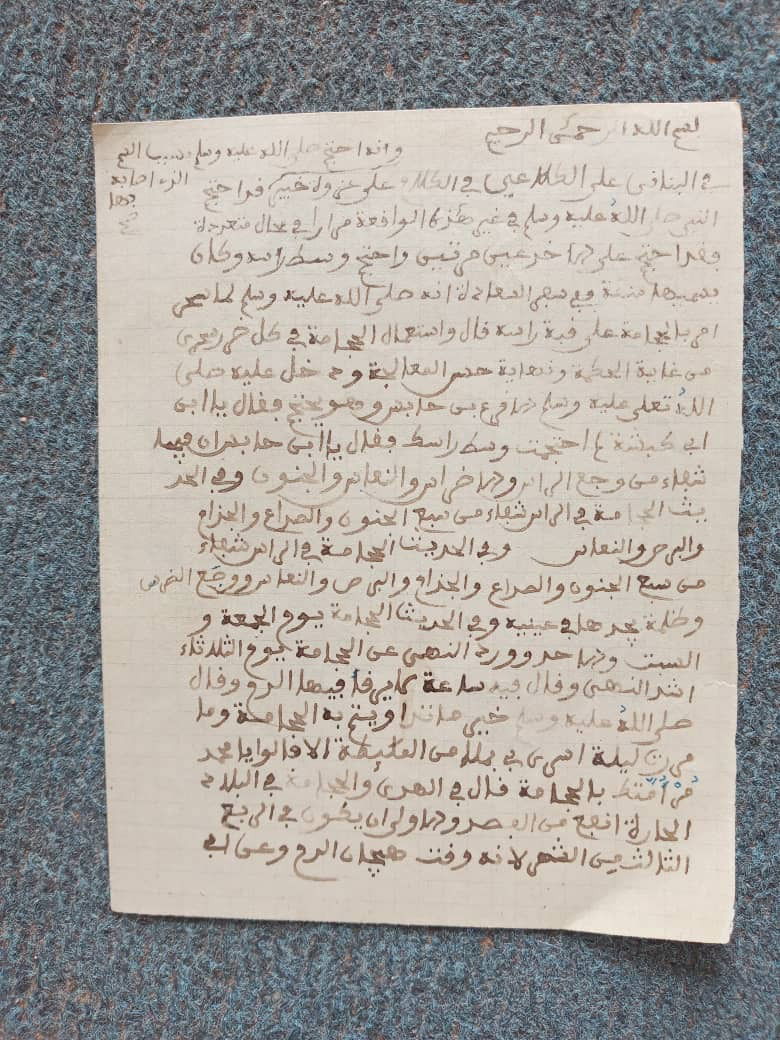 بسم الله الرحمن الرحيم
وانه احتجم صلى الله عليه وسلم بسبب السم
الذي اصابه
بها
في البنافى على الكلام على في الكلام على غزوة خيبر قد احتجم
النبي صلى الله عليه وسلم في غير هذه الواقعة مرارا في محال متعددة
فقد احتجم على الاخدعين مرتين واحتجم وسط راسه وكان
يسميها منقذة وفي سفر السعادة انه صلى الله عليه وسلم لما سحر
امر بالحجامة على قبة راسه قال واستعمال الحجامة في كل ضرر سحرى
من غاية الحكمة ونهاية حسن المعالجة ودخل عليه صلى
الله تعلى عليه وسلم الاقرع بن حابس وهو يحتجم فقال يا ابن
ابى كبشة لم احتجمت وسط راسك فقال يا ابن حابس ان فيها
شفاء من وجع الراس والاضراس والنعاس والجنون وفي الحد
يث الحجامة في الراس شفاء من سبع الجنون والصداع والجذام
والبرص والنعاس وفي الحديث الحجامة في الراس شفاء
من سبع الجنون والصداع والجذام والبرص والنعاس ووجع الضرس
وظلمة يجدها في عينيه وفي الحديث الحجامة يوم الجمعة و
السبت والاحد وورد النهى عن الحجامة يوم الثلاثاء
اشد النهى وقال فيه ساعة لا يرقا فيها الدم وقال
صلى الله عليه وسلم خير ما تداويتم به الحجامة وما
مررت ليلة اسرى بي بملا من الملئكة الا قالوا يا محمد
مر امتك بالحجامة قال في الهدى والحجامة في البلاد
الحارة انفع من الفصد والاولى ان يكون في الربع
الثالث من الشهر لانه وقت هيجان الدم وعن ابي